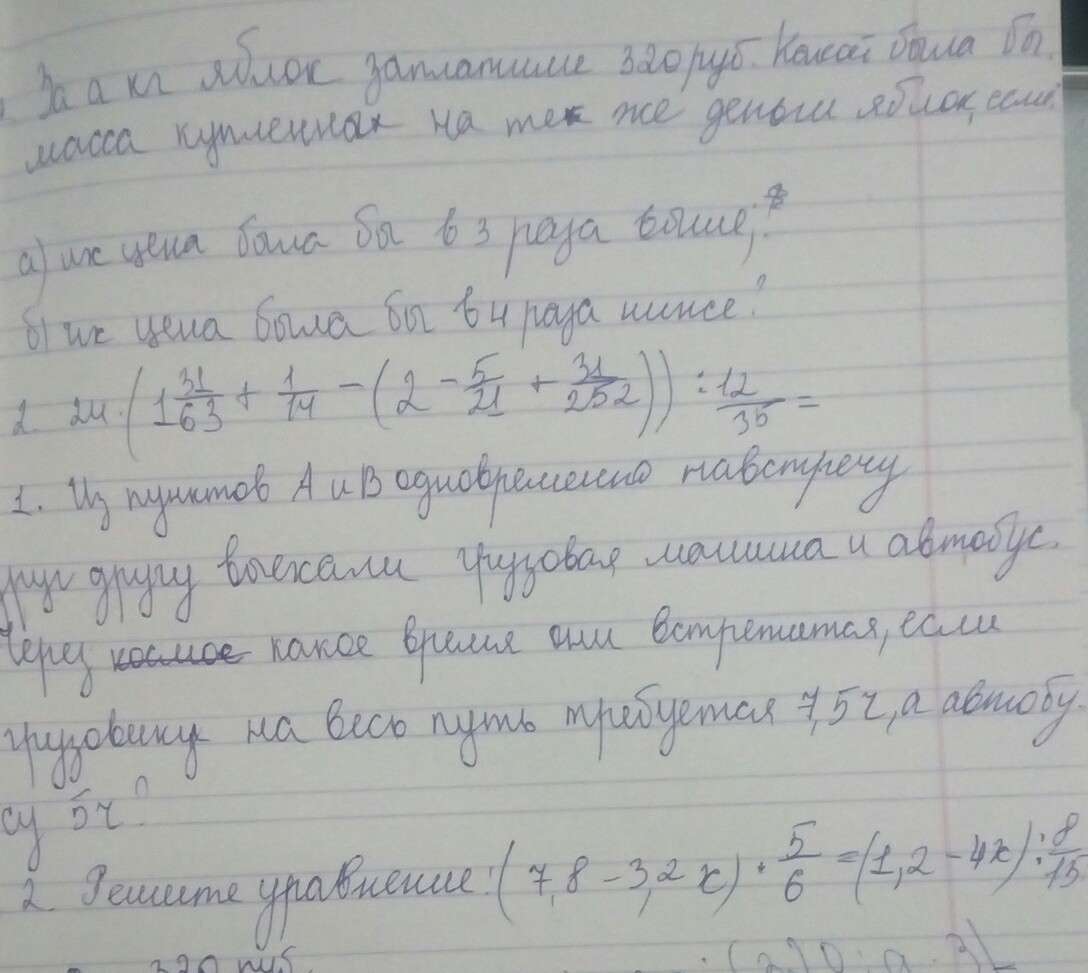 За а кг яблок заплатили 320 руб. Какой была бы
масса купленных на тех же деньги яблок, если
а) их цена была бы в 3 раза выше;?
б) их цена была бы в 4 раза ниже?
2. 24·(1 31/63 + 1/14 - (2 - 5/21 + 31/252)) : 12/35 =
1. Из пунктов А и В одновременно навстречу
друг другу выехали грузовая машина и автобус.
Через какое время они встретится, если
грузовику на весь путь требуется 7,5 ч, а автобу-
су 5 ч?
2. Решите уравнение: (7,8 - 3,2x) · 5/6 = (1,2 - 4x) : 8/15
320 руб.